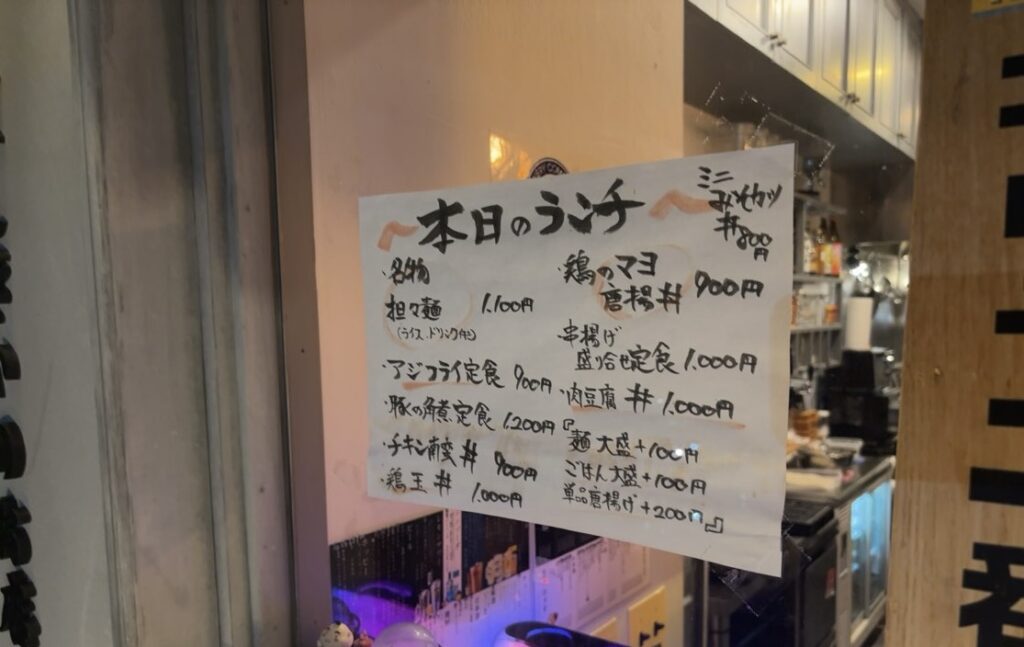 〜本日のランチ〜
ミニ
みそカツ
丼800円
・名物
担々麺 1.100円
(ライス、ドリンク付)
・アジフライ定食 900円
・豚の角煮定食 1.200円
・チキン南蛮丼 900円
・鶏玉丼 1.000円
・鶏のマヨ
唐揚丼 900円
・串揚げ
盛り合せ定食 1.000円
・肉豆腐丼 1.000円
『麺大盛+100円
ごはん大盛+100円
単品唐揚げ+200円』